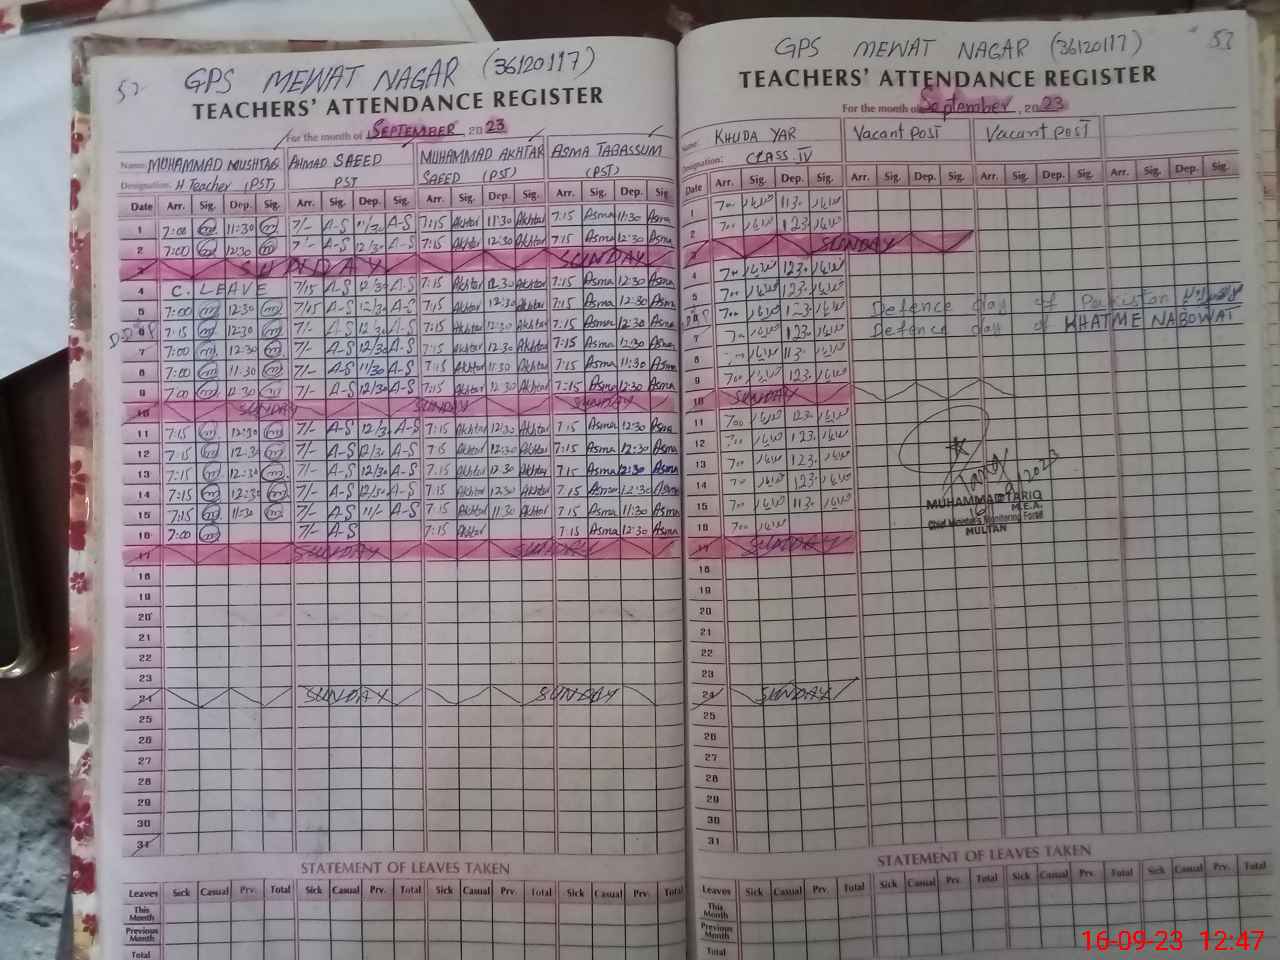 52 GPS MEWAT NAGAR (36120117)
TEACHERS' ATTENDANCE REGISTER
For the month of SEPTEMBER, 20 23
Name: MUHAMMAD MUSHTAQ AHMAD SAEED MUHAMMAD AKHTAR SAEED ASMA TABASSUM
Designation: H Teacher (PST) PST (PST) (PST)
Date Arr. Sig. Dep. Sig. Arr. Sig. Dep. Sig. Arr. Sig. Dep. Sig. Arr. Sig. Dep. Sig.
1 7:00 m 11:30 m 7/- A-S 11/30 A-S 7:15 Akhtar 11:30 Akhtar 7:15 Asma 11:30 Asma
2 7:00 m 12:30 m 7/- A-S 12/30 A-S 7:15 Akhtar 12:30 Akhtar 7:15 Asma 12:30 Asma
3 SUNDAY SUNDAY
4 C. LEAVE 7/15 A-S 12/30 A-S 7:15 Akhtar 12:30 Akhtar 7:15 Asma 12:30 Asma
5 7:00 m 12:30 m 7/05 A-S 12/30 A-S 7:15 Akhtar 12:30 Akhtar 7:15 Asma 12:30 Asma
6 7:15 m 12:30 m 7/- A-S 12/30 A-S 7:15 Akhtar 12:30 Akhtar 7:15 Asma 12:30 Asma
7 7:00 m 12:30 m 7/- A-S 12/30 A-S 7:15 Akhtar 12:30 Akhtar 7:15 Asma 12:30 Asma
8 7:00 m 11:30 m 7/- A-S 11/30 A-S 7:15 Akhtar 11:30 Akhtar 7:15 Asma 11:30 Asma
9 7:00 m 12:30 m 7/- A-S 12/30 A-S 7:15 Akhtar 12:30 Akhtar 7:15 Asma 12:30 Asma
10 SUNDAY SUNDAY SUNDAY
11 7:15 m 12:30 m 7/- A-S 12/30 A-S 7:15 Akhtar 12:30 Akhtar 7:15 Asma 12:30 Asma
12 7:15 m 12:30 m 7/- A-S 12/30 A-S 7:15 Akhtar 12:30 Akhtar 7:15 Asma 12:30 Asma
13 7:15 m 12:30 m 7/- A-S 12/30 A-S 7:15 Akhtar 12:30 Akhtar 7:15 Asma 12:30 Asma
14 7:15 m 12:30 m 7/- A-S 12/30 A-S 7:15 Akhtar 12:30 Akhtar 7:15 Asma 12:30 Asma
15 7:15 m 11:30 m 7/- A-S 11/- A-S 7:15 Akhtar 11:30 Akhtar 7:15 Asma 11:30 Asma
16 7:00 m 7/- A-S 7:15 Akhtar 7:15 Asma 12:30 Asma
17 SUNDAY SUNDAY
18
19
20
21
22
23
24 SUNDAY SUNDAY
25
26
27
28
29
30
31
STATEMENT OF LEAVES TAKEN
Leaves Sick Casual Prv. Total Sick Casual Prv. Total Sick Casual Prv. Total Sick Casual Prv. Total
This Month
Previous Month
Total
GPS MEWAT NAGAR (36120117) 52
TEACHERS' ATTENDANCE REGISTER
For the month of September, 20 23
Name: KHUDA YAR Vacant Post Vacant Post
Designation: CLASS IV
Date Arr. Sig. Dep. Sig. Arr. Sig. Dep. Sig. Arr. Sig. Dep. Sig. Arr. Sig. Dep. Sig.
1 700 1130
2 700 1230
3 SUNDAY
4 700 1230
5 700 1230
6 700 1230 Defence day of Pakistan
7 1230 Defence day of KHATME NABOWAT
8 1130
9 700 1230
10 SUNDAY
11 700 1230
12 700 1230
13 700 1230
14 700 1230
15 700 1130
16 700
17 SUNDAY
18
19
20
21
22
23
24 SUNDAY
25
26
27
28
29
30
31
MUHAMMAD TARIQ
M.E.A.
Chief Minister's Monitoring Force
MULTAN
STATEMENT OF LEAVES TAKEN
Leaves Sick Casual Prv. Total Sick Casual Prv. Total Sick Casual Prv. Total Sick Casual Prv. Total
This Month
Previous Month
Total
16-09-23 12:47